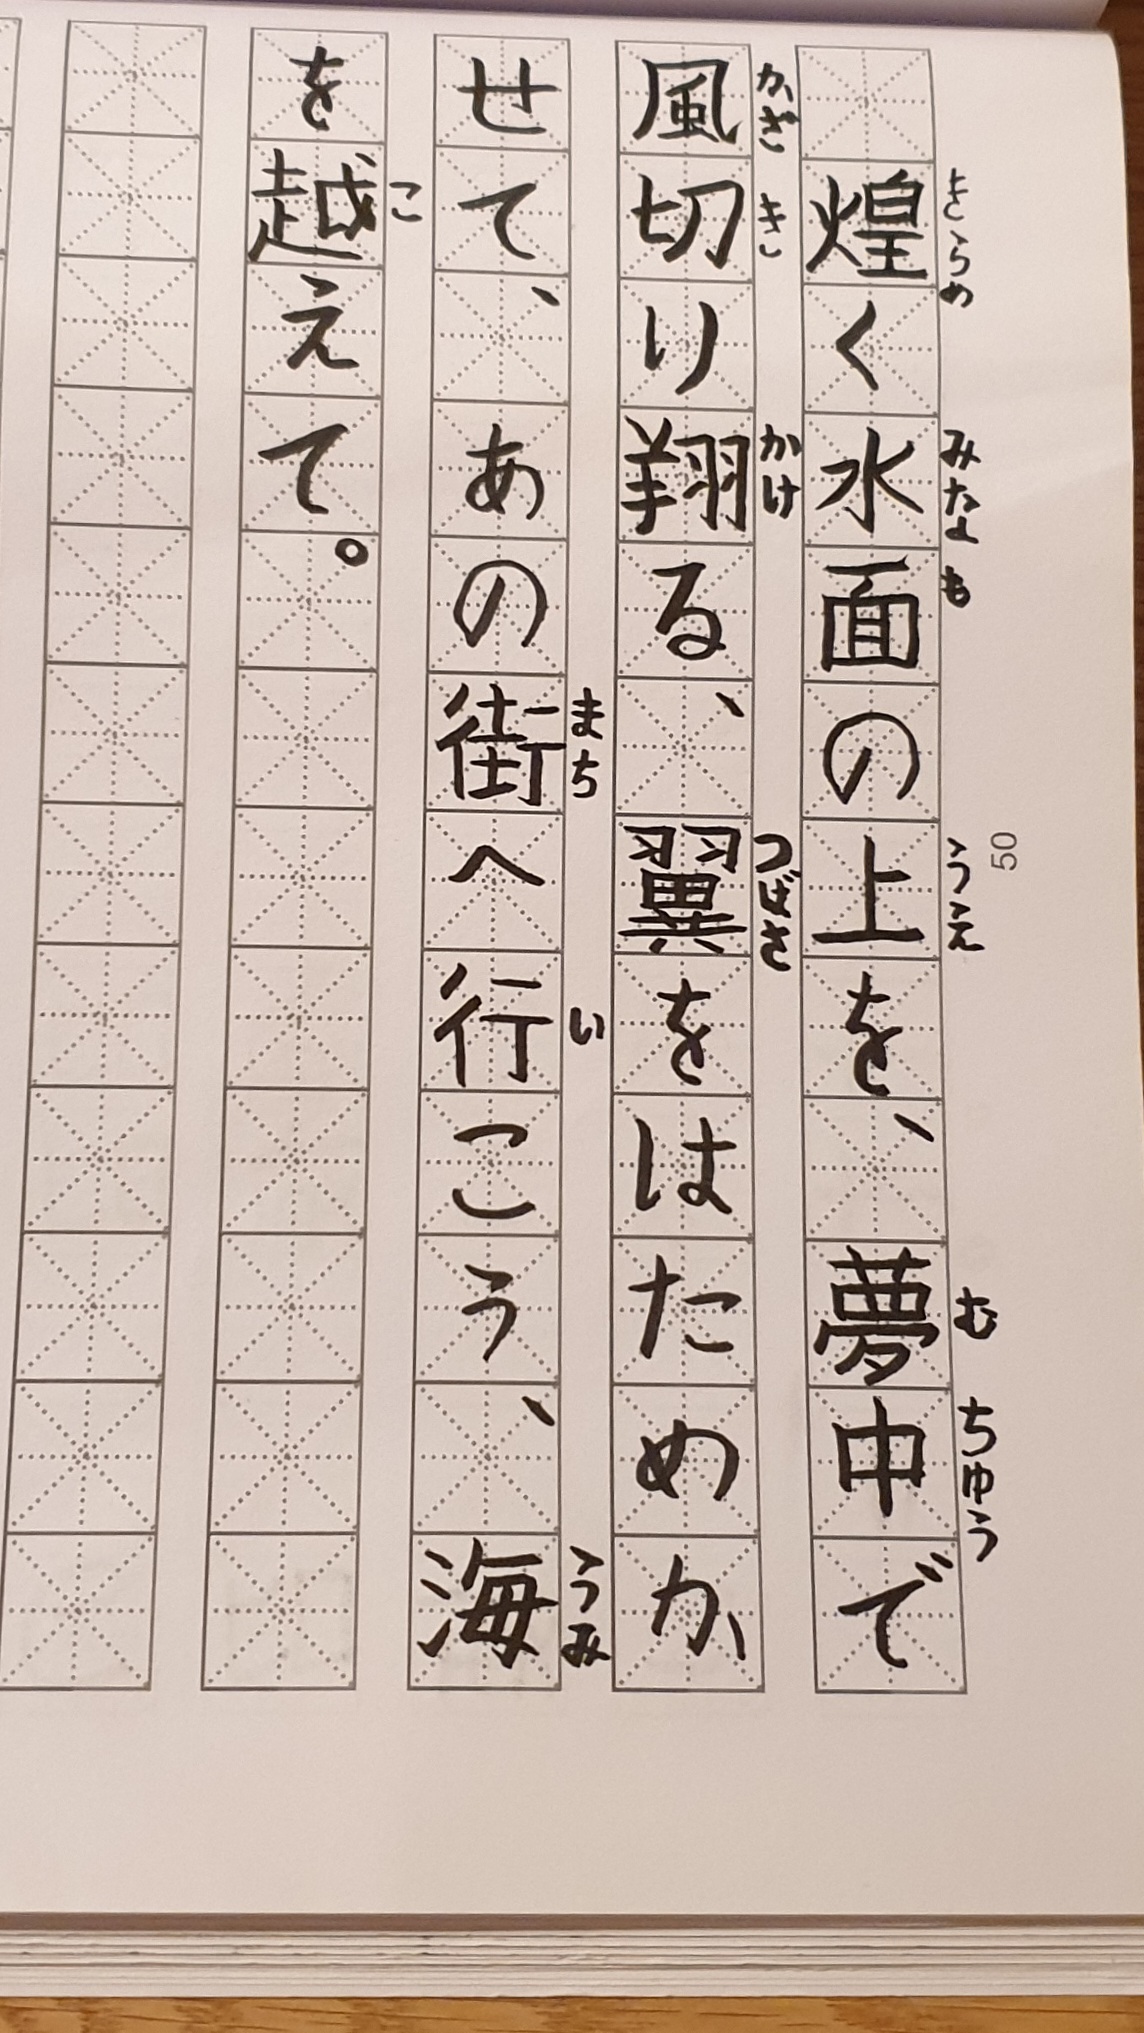 煌く水面の上を、夢中で
きらめ みなも うえ む ちゅう
風切り翔る、翼をはためか
かざ き かけ つばさ
せて、あの街へ行こう、海
まち い うみ
を越えて。
こ
50